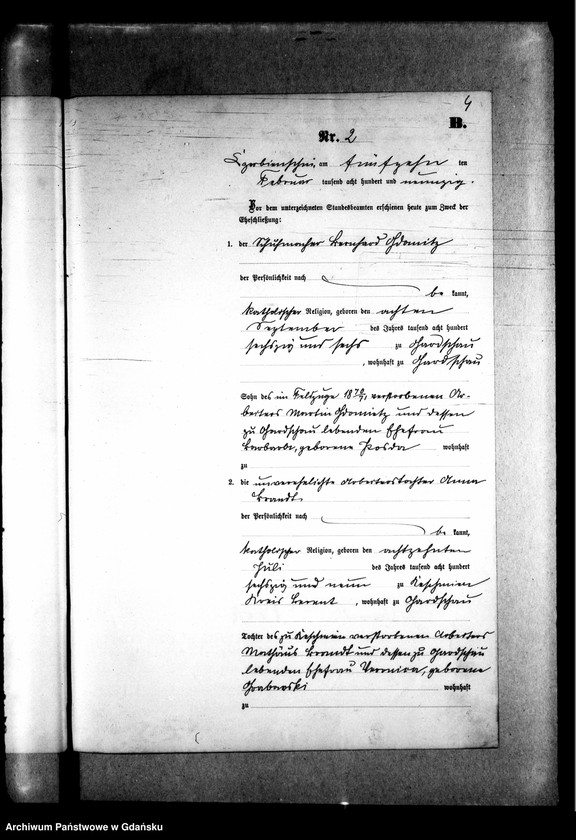 4
B.
Nr. 2
am fünfzehn ten
Februar tausend acht hundert und neunzig.
Vor dem unterzeichneten Standesbeamten erschienen heute zum Zweck der
Eheschließung:
1. der Schuhmacher Bernhard
der Persönlichkeit nach
be kannt,
katholischer Religion, geboren den achten
September des Jahres tausend acht hundert
sechszig und sechs zu Gardschau
, wohnhaft zu Gardschau
Sohn des im Feldzuge 1870/71 verstorbenen Ar-
beiters Martin und dessen
zu Gardschau lebenden Ehefrau
Barbara, geborene wohnhaft
zu
2. die unverehelichte Arbeiterstochter Anna
Brandt
der Persönlichkeit nach
be kannt,
katholischer Religion, geboren den achtzehnten
Juli des Jahres tausend acht hundert
sechszig und neun zu
Kreis Berent, wohnhaft zu Gardschau
Tochter des zu verstorbenen Arbeiters
Mathäus Brandt und dessen zu Gardschau
lebenden Ehefrau geborene
Grabowski wohnhaft
zu
Archiwum Państwowe w Gdańsku